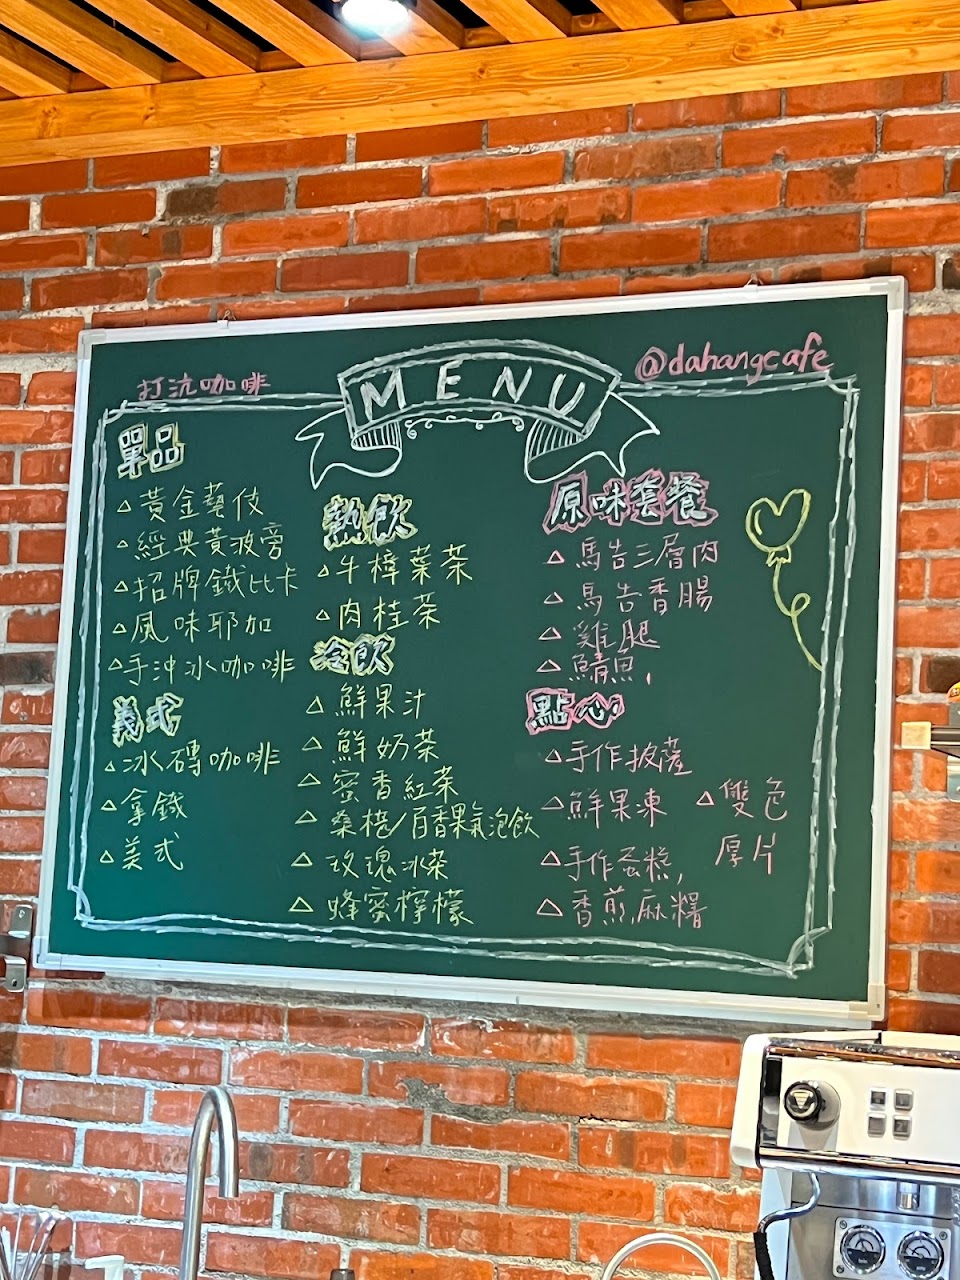 打沆咖啡
MENU
@dahangcafe
單品
△黃金藝伎
△經典黃波旁
△招牌鐵比卡
△風味耶加
△手沖冰咖啡
義式
△冰磚咖啡
△拿鐵
△美式
熱飲
△牛樟葉茶
△肉桂茶
冷飲
△鮮果汁
△鮮奶茶
△蜜香紅茶
△桑椹/百香果氣泡飲
△玫瑰冰茶
△蜂蜜檸檬
原味套餐
△馬告三層肉
△馬告香腸
△雞腿
△鯖魚
點心
△手作披薩
△鮮果凍
△手作蛋糕
△香煎麻糬
△雙色
厚片